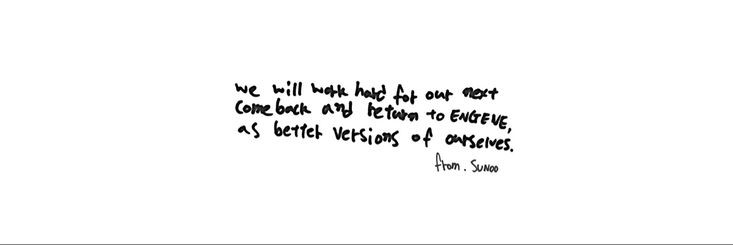 we will work hard for our next
comeback and return to ENGENE,
as better versions of ourselves.
from. SUNOO